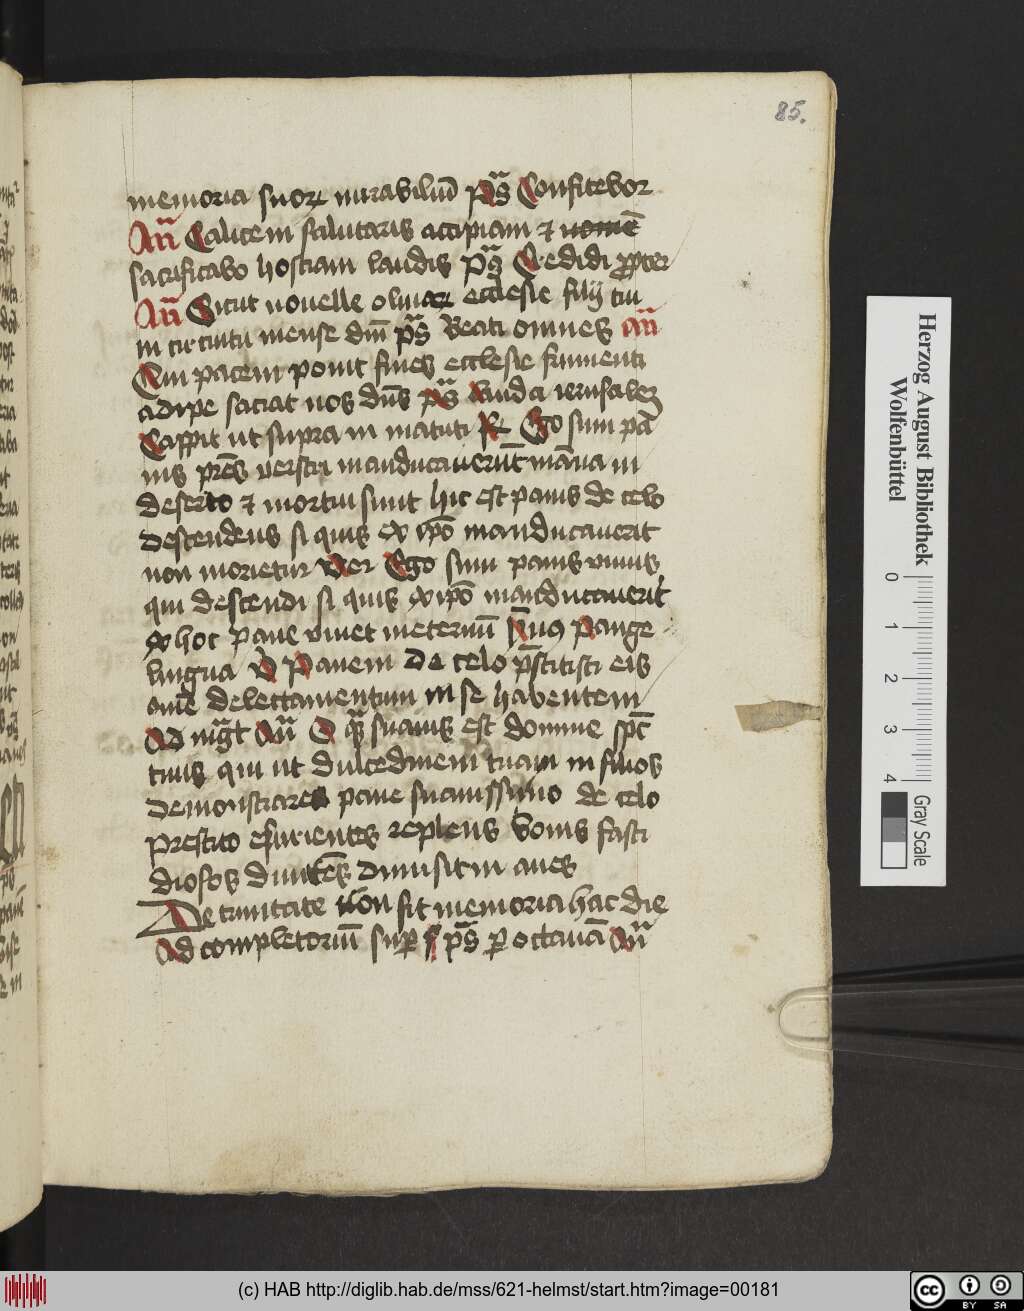 85.
memoria suorum mirabiliū ps̄ Confitebor
An̄ Calicem salutaris accipiam et nomē
sacrificabo hostiam laudis ps̄ Credidi propter
An̄ Sicut novelle olivar ecclesie filij tui
in circuitu mense dn̄i ps̄ Beati omnes an̄
Qui pacem ponit fines ecclesie frumenti
adipe saciat nos dn̄s ps̄ Lauda ierusalem
Cappit ut supra in matuti R Ego sum pa
nis pr̄es vestri manducaverūt māna in
deserto et mortui sunt hic est panis de celo
descendens si quis ex ip̄o manducaverit
non morietur Ver Ego sum panis vivus
qui descendi si quis ex ip̄o manducaverit
ex hoc pane vivet in eternū ymnus Pange
lingua V Panem de celo p̄stitisti eis
om̄e delectamentum in se habentem
Ad mgt̄ An̄ O q̄ suavis est domine sp̄c
tuus qui ut dulcedinem tuam in filios
demonstrares pane suavissimo de celo
prestito esurientes replens bonis fasti
diosos divites dimisit in anes
De trinitate non fit memoria hac die
Ad completoriū sup ps̄ p octavā an̄
Herzog August Bibliothek
Wolfenbüttel
0 1 2 3 4
Gray Scale
(c) HAB http://diglib.hab.de/mss/621-helmst/start.htm?image=00181
cc BY SA